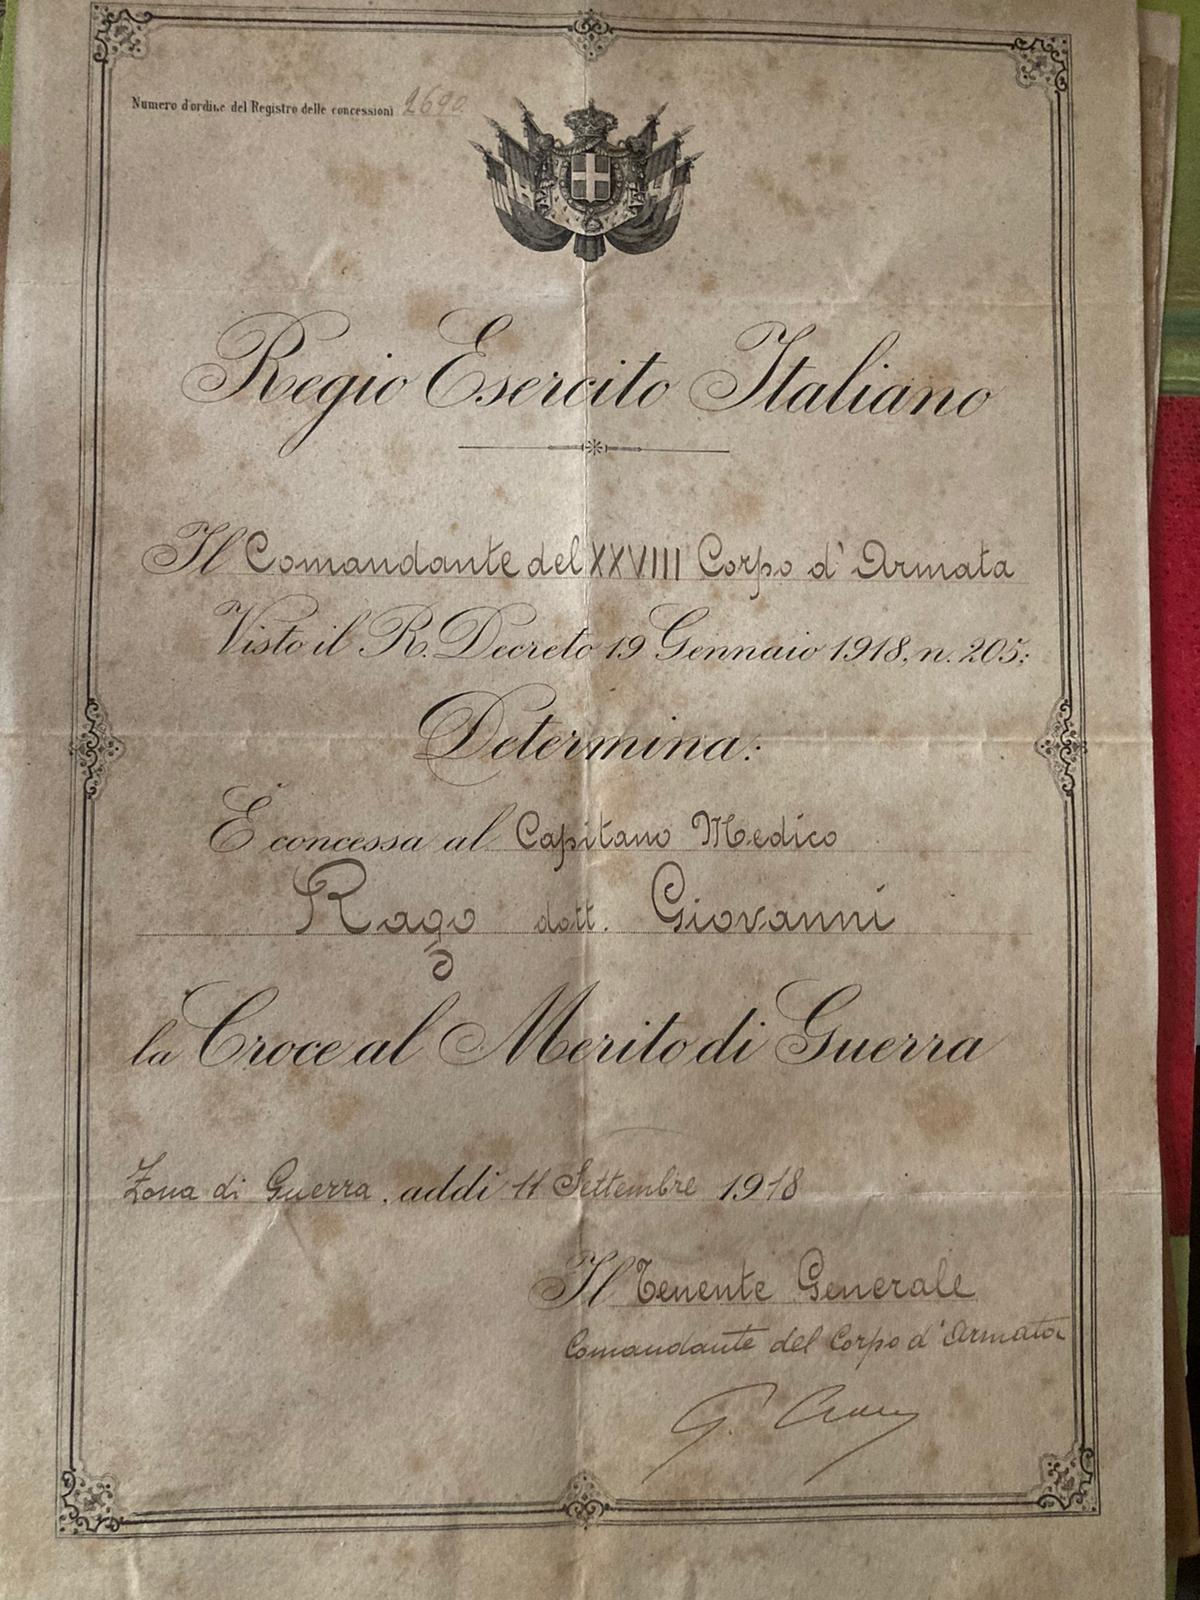 Numero d'ordine del Registro delle concessioni 2690
Regio Esercito Italiano
Il Comandante del XXVIII Corpo d'Armata
Visto il R. Decreto 19 Gennaio 1918, n. 205:
Determina:
È concessa al Capitano Medico
Rago dott. Giovanni
la Croce al Merito di Guerra
Zona di Guerra, addì 11 Settembre 1918
Il Tenente Generale
Comandante del Corpo d'Armata
G.